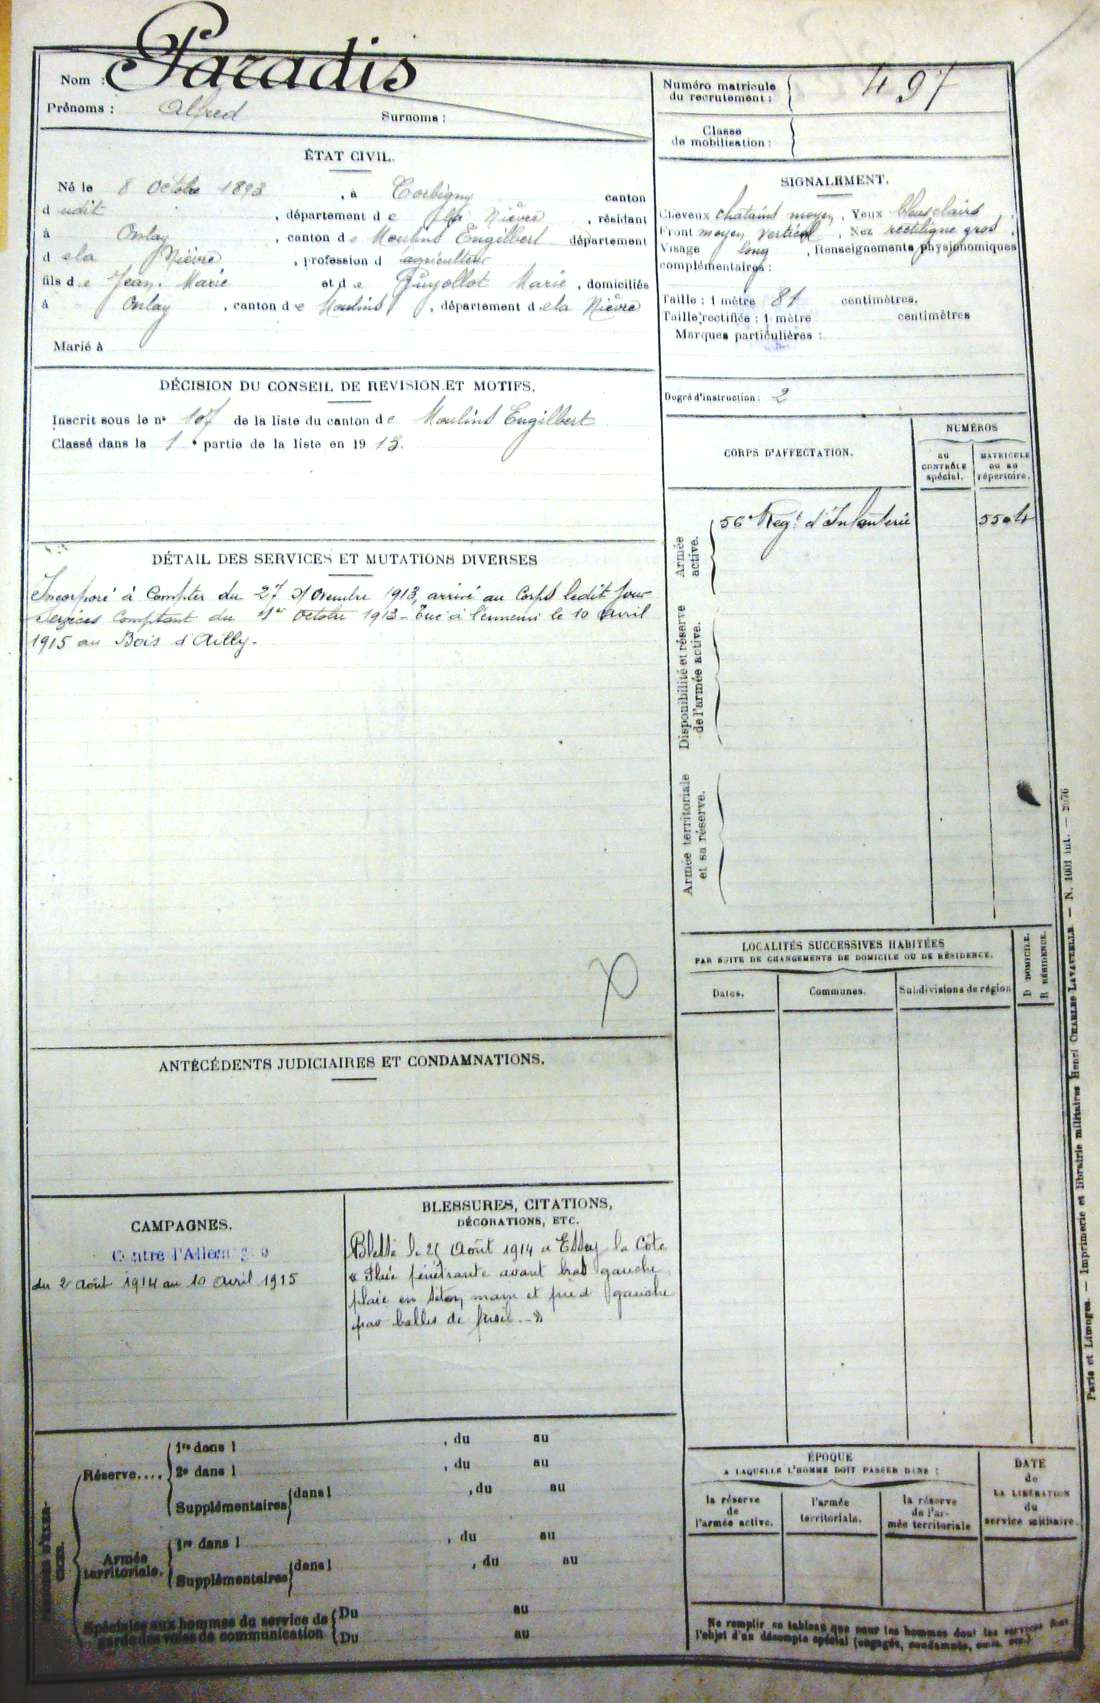 Nom : Paradis
Prénoms : Alfred Surnoms :
Numéro matricule du recrutement : 497
Classe de mobilisation :
ÉTAT CIVIL.
Né le 8 Octobre 1893, à Corbigny canton
dudit, département de la Nièvre, résidant
à Onlay, canton de Moulins Engilbert département
de la Nièvre, profession d agriculteur
fils de Jean-Marie et de Guyollot Marie, domiciliés
à Onlay, canton de Moulins, département de la Nièvre
Marié à
SIGNALEMENT.
Cheveux chatains moyen, Yeux bleus clairs,
Front moyen vertical, Nez rectiligne gros,
Visage long, Renseignements physionomiques
complémentaires :
Taille : 1 mètre 81 centimètres.
Taille rectifiée : 1 mètre centimètres
Marques particulières :
Degré d'instruction : 2
DÉCISION DU CONSEIL DE REVISION ET MOTIFS.
Inscrit sous le n° 107 de la liste du canton de Moulins Engilbert
Classé dans la 1e partie de la liste en 1913.
CORPS D'AFFECTATION.
NUMÉROS
au CONTRÔLE spécial.
MATRICULE ou au répertoire.
Armée active.
56e Regt d'Infanterie
Disponibilité et réserve de l'armée active.
Armée territoriale et sa réserve.
DÉTAIL DES SERVICES ET MUTATIONS DIVERSES
Incorporé à Compter du 27 Novembre 1913, arrivé au Corps ledit jour
Services Comptant du 1er Octobre 1913 - Tué à l'ennemi le 10 avril
1915 au Bois d'Ailly.
LOCALITÉS SUCCESSIVES HABITÉES
PAR SUITE DE CHANGEMENTS DE DOMICILE OU DE RÉSIDENCE.
Dates.
Communes.
Subdivisions de région
D DOMICILE.
R RÉSIDENCE.
ANTÉCÉDENTS JUDICIAIRES ET CONDAMNATIONS.
CAMPAGNES.
Contre l'Allemagne
du 2 Août 1914 au 10 Avril 1915
BLESSURES, CITATIONS,
DÉCORATIONS, ETC.
Blessé le 25 Août 1914 à Essey la Côte
« Plaie pénétrante avant bras gauche
plaie en séton, main et pied gauche
par balles de fusil. »
Réserve....
1re dans l , du au
2e dans l , du au
Supplémentaires dans l , du au
Armée territoriale.
1re dans l , du au
Supplémentaires dans l , du au
Spéciales aux hommes du service de garde des voies de communication
Du au
Du au
ÉPOQUE
A LAQUELLE L'HOMME DOIT PASSER DANS :
la réserve de l'armée active.
l'armée territoriale.
la réserve de l'armée territoriale
DATE de LA LIBÉRATION du service militaire
Ne remplir ce tableau que pour les hommes dont les services font
l'objet d'un décompte spécial (engagés, condamnés, omis, etc.)
Paris et Limoges. — Imprimerie et librairie militaires Henri CHARLES-LAVAUZELLE. — N. 1001 int. — 2076